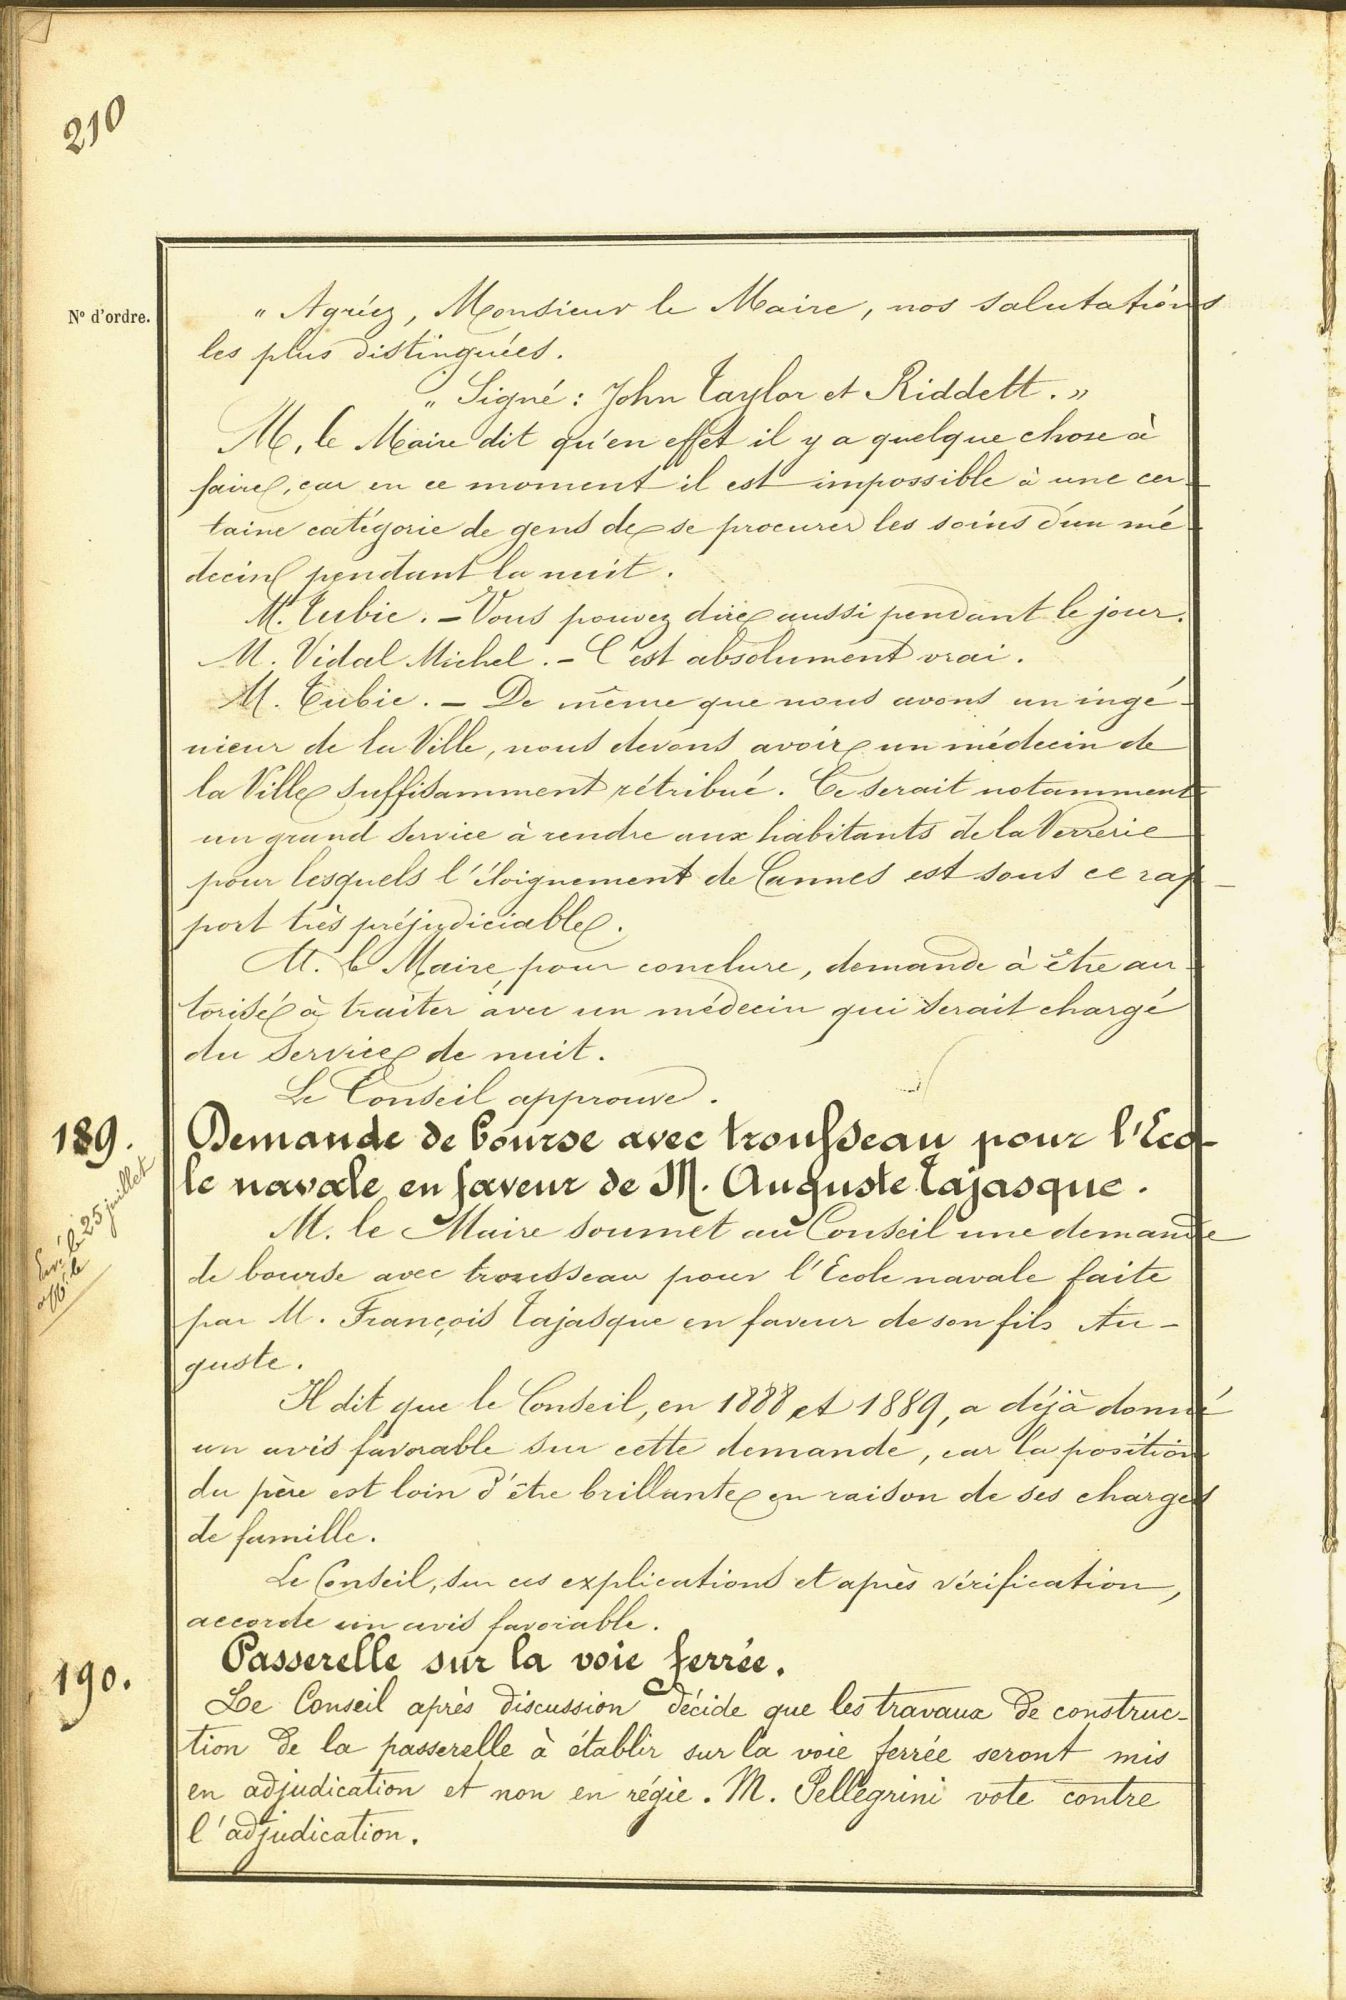 210
N° d'ordre.
" Agréez, Monsieur le Maire, nos salutations
les plus distinguées.
" Signé : John Taylor et Riddett. "
M. le Maire dit qu'en effet il y a quelque chose à
faire, car en ce moment il est impossible à une cer-
taine catégorie de gens de se procurer les soins d'un mé-
decin pendant la nuit.
M. Tubie. – Vous pouvez dire aussi pendant le jour.
M. Vidal Michel. – C'est absolument vrai.
M. Tubie. – De même que nous avons un ingé-
nieur de la Ville, nous devons avoir un médecin de
la Ville suffisamment rétribué. Ce serait notamment
un grand service à rendre aux habitants de la Verrerie
pour lesquels l'éloignement de Cannes est sous ce rap-
port très préjudiciable.
M. le Maire, pour conclure, demande à être au-
torisé à traiter avec un médecin qui serait chargé
du service de nuit.
Le Conseil approuve.
189.
Demande de bourse avec trousseau pour l'Eco-
le navale en faveur de M. Auguste Tajasque.
le 25 juillet
M. le Maire soumet au Conseil une demande
de bourse avec trousseau pour l'Ecole navale faite
par M. François Tajasque en faveur de son fils Au-
guste.
Il dit que le Conseil, en 1888 et 1889, a déjà donné
un avis favorable sur cette demande, car la position
du père est loin d'être brillante en raison de ses charges
de famille.
Le Conseil, sur ces explications et après vérification,
accorde un avis favorable.
190.
Passerelle sur la voie ferrée.
Le Conseil après discussion décide que les travaux de construc-
tion de la passerelle à établir sur la voie ferrée seront mis
en adjudication et non en régie. M. Pellegrini vote contre
l'adjudication.